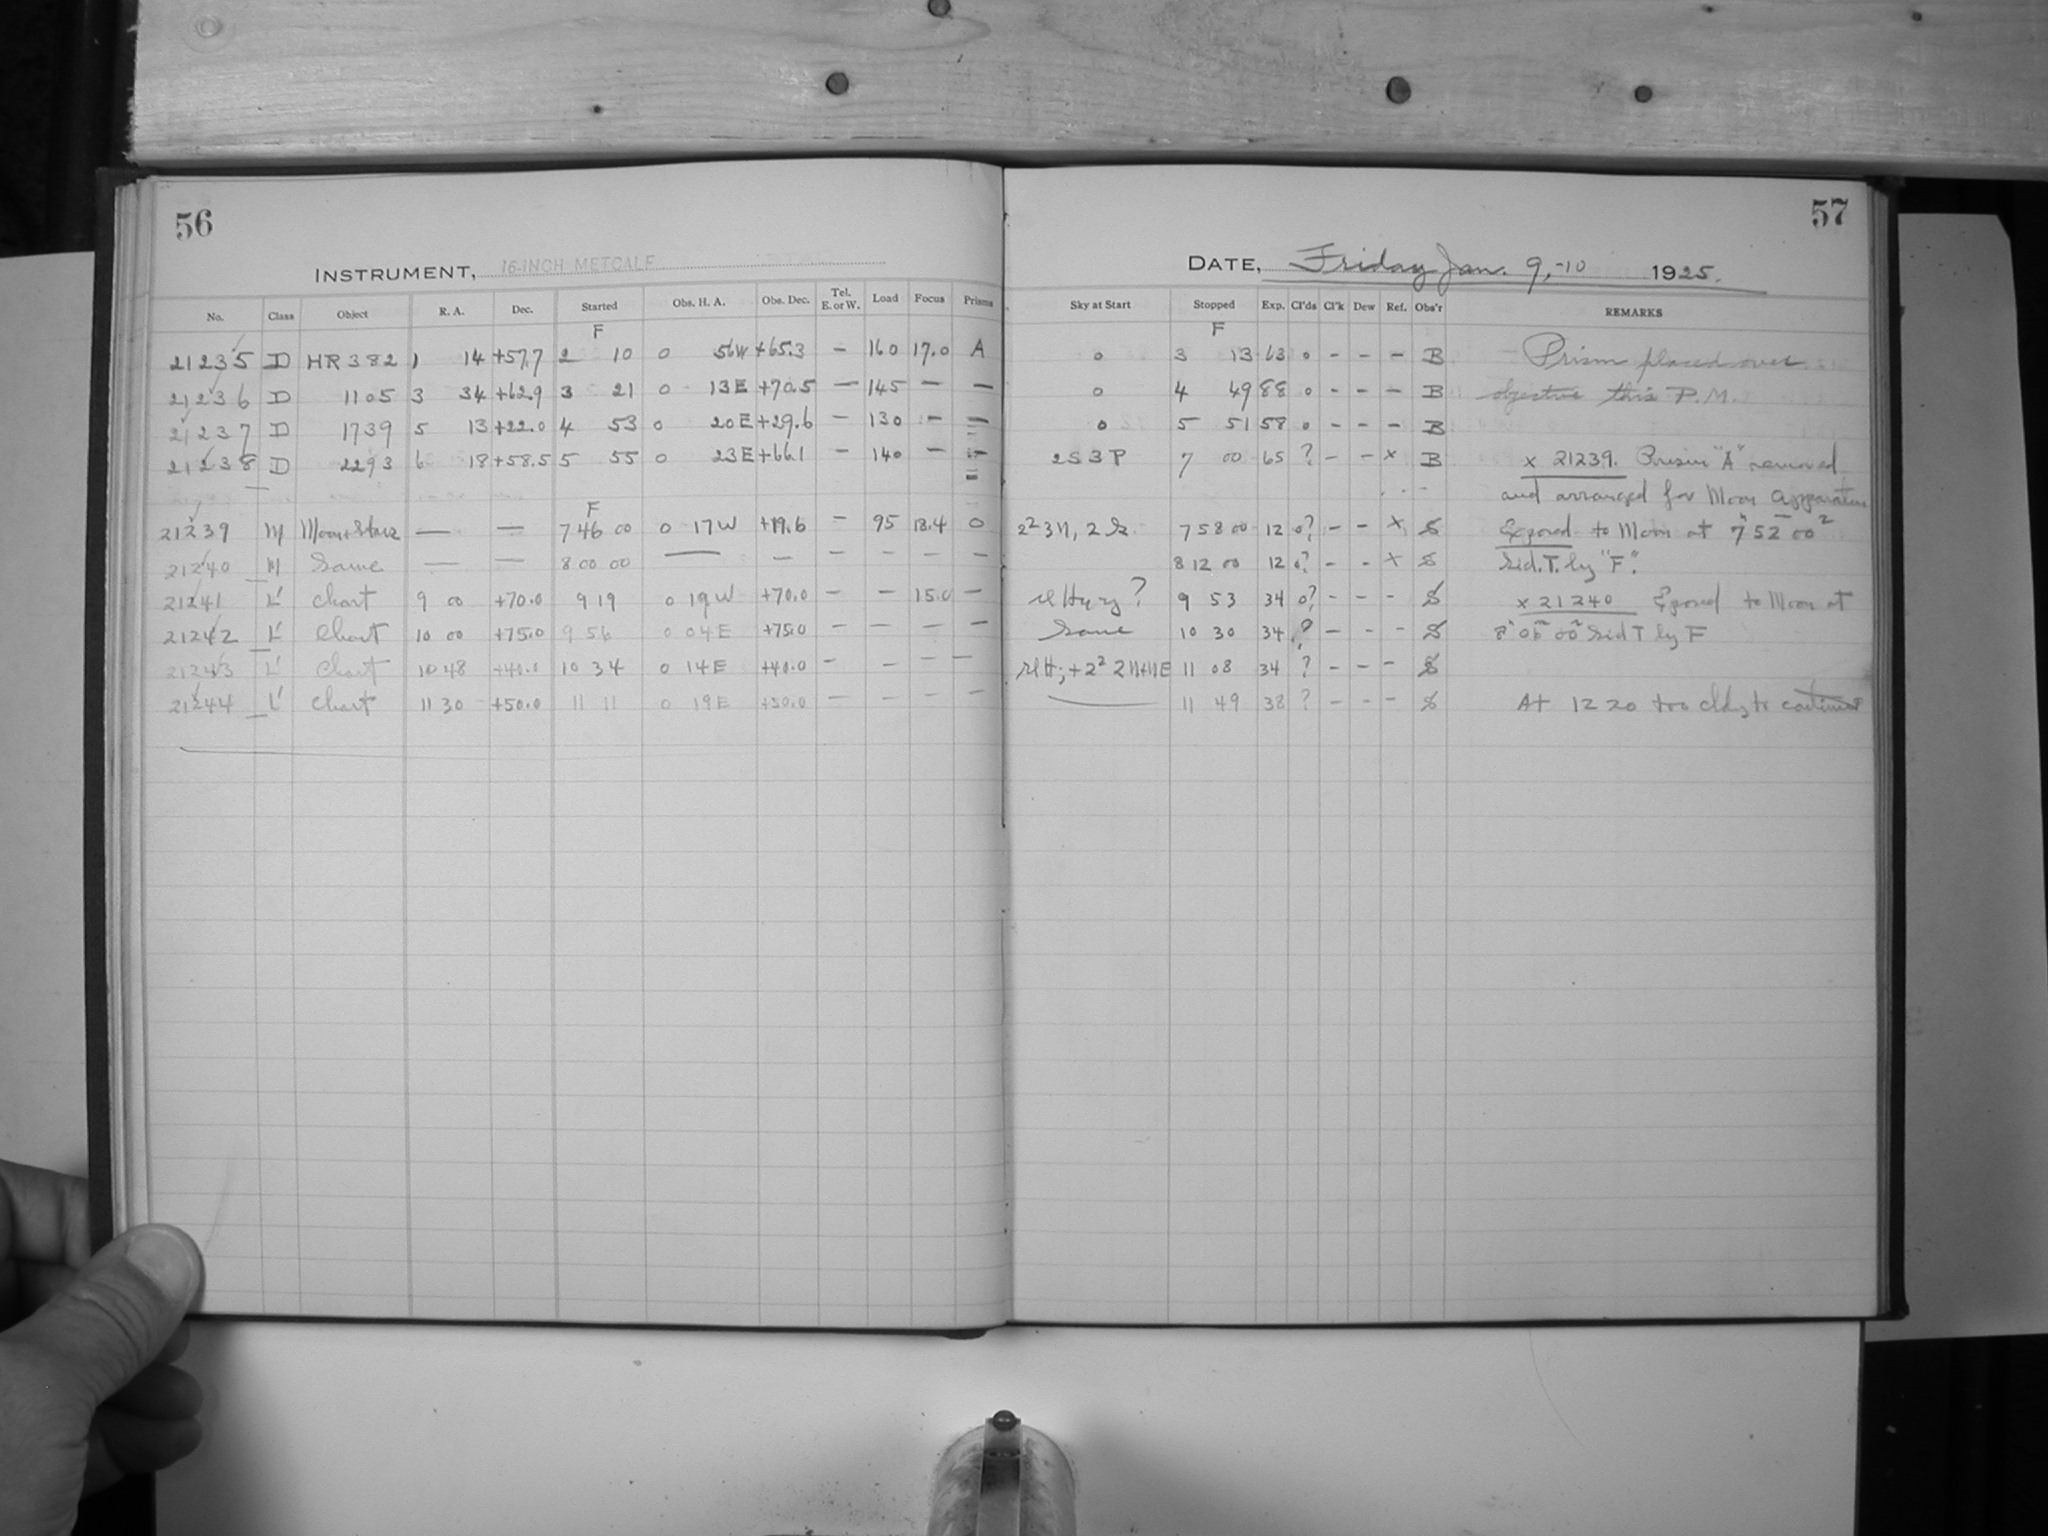 56
INSTRUMENT, 16-INCH METCALF
No. Class Object R. A. Dec. Started Obs. H. A. Obs. Dec. Tel. E. or W. Load Focus Prisms
F
21235 D HR 382 1 14 +57.7 2 10 0 56W +65.3 — 160 17.0 A
21236 D 1105 3 34 +62.9 3 21 0 13E +70.5 — 145 — —
21237 D 1739 5 13 +22.0 4 53 0 20E +29.6 — 130 — —
21238 D 2293 6 18 +58.5 5 55 0 23E +66.1 — 140 — —
F
21239 M Moon + Stars — — 7 46 00 0 17W +19.6 — 95 18.4 0
21240 M Same — — 8 00 00 — — — — — —
21241 L' Chart 9 00 +70.0 9 19 0 19W +70.0 — — 15.0 —
21242 L' Chart 10 00 +75.0 9 56 0 04E +75.0 — — — —
21243 L' Chart 10 48 +40.0 10 34 0 14E +40.0 — — — —
21244 L' Chart 11 30 +50.0 11 11 0 19E +50.0 — — — —
57
DATE, Friday Jan. 9,-10 1925.
Sky at Start Stopped Exp. Cl'ds Cl'k Dew Ref. Obs'r REMARKS
F
0 3 13 63 0 - - - B Prism placed over
0 4 49 88 0 - - - B objective this P.M.
0 5 51 58 0 - - - B
2S 3P 7 00 65 ? - - x B x 21239. Prism "A" removed
and arranged for Moon apparatus
7 58 00 12 0? - - x S Exposed to Moon at 7 52 00
8 12 00 12 0? - - x S Sid. T. by "F".
9 53 34 0? - - - S x 21240 Exposed to Moon at
Same 10 30 34 ? - - - S 8 06 00 Sid T by F
11 08 34 ? - - - S
11 49 38 ? - - - S At 12 20 too cldy to continue